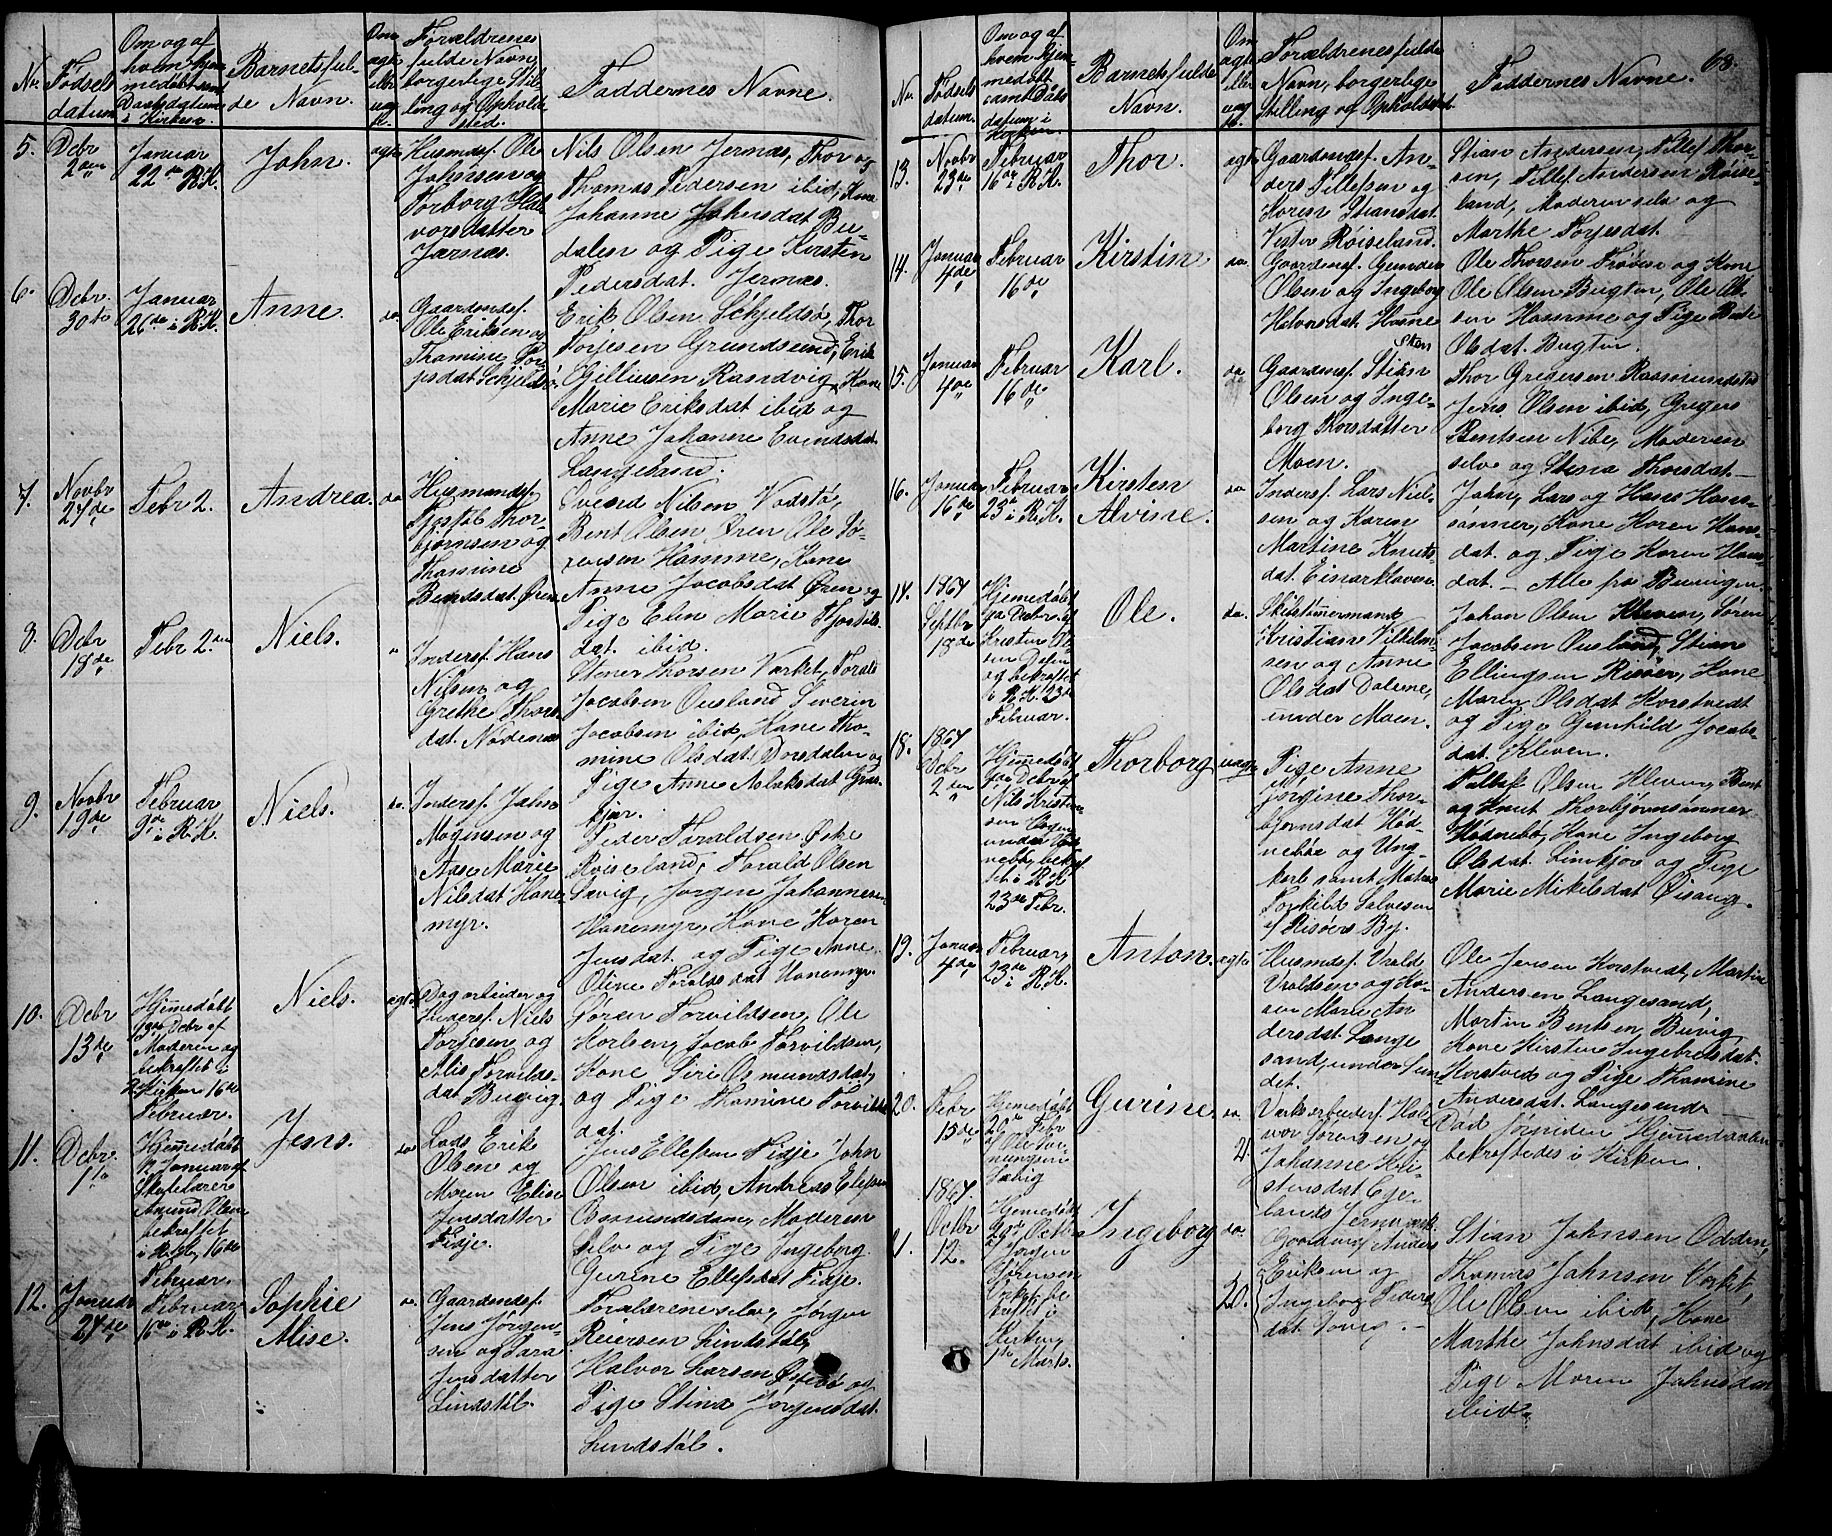 No.
Fødsels
datum
Om og af
hvem hjem
medøbt samt
Daabsdatum
i Kirken.
Barnets ful-
de Navn.
Om
ægte
eller
uæg
te.
Forældrenes
fulde Navn,
borgerlige Stil-
ling og Opholds
sted.
Faddernes Navne.
5.
Decbr
2den
Januar
22de R.K.
John
ægte
Husmdsf. Ole
Johnsen og
Torborg Hal
vorsdatter
Jernæs.
Nils Olsen Jernæs, Thor og
Thomas Pedersen ibid, Kone
Johanne Johnsdat. Bu-
dalen og Pige Kirsten
Pedersdat. Jernæs.
6.
Decbr.
30te
Januar
26de i R.K.
Anne
do.
Gaardmdsf.
Ole Eriksen og
Thomine Tor
jesdat Schjeldsø
Erik Olsen Schjeldsø, Thor
Torjesen Grundsund, Erik
Gilliusen Randvig, Kone
Marie Eriksdat ibid og
Anne Johanne Evendsdat
Langeland.
7.
Novbr
24de
Febr 2.
Andrea.
do
Husmandsf.
Tjostøl Thor-
bjørnsen og
Thomine
Bentsdat. Øren
Evend Nilsen Vadstø,
Bent Olsen Øren Ole So-
rensen Hamme, Kone
Anne Jacobsdat Øren og
Pige Elen Marie Tjostøls
dat. ibid.
8.
Decbr
18de
Febr 2den
Niels.
"
Indersf. Hans
Nilsen og
Grethe Thors
dat. Nødenæs
Stener Thorsen Varket, Torald
Jacobsen Ousland Severin
Jacobsen ibid, Kone Tho-
mine Olsdat. Dorsdalen og
Pige Anne Aslaksdat Græs
kjær.
9.
Novbr
19de
Februar
9de i R.K.
Niels.
do.
Indersf. John
Mogensen og
Aase Marie
Nilsdat Hane
myr.
Peder Toraldsen Øske
Røiseland, Torald Olsen
Savig, Jørgen Johannesen
Hanemyr, Kone Karen
Jensdat og Pige Anne
Oline Toraldsdat Hanemyr
10.
Decbr
13de
Hjemedøbt
Decbr af
Moderen og
bekræftet i
Kirken 16de
Februar.
Niels.
ægte
Dagarbeider og
Indersf. Niels
Torjesen og
Alis Torvilds-
dat Bugvig.
Søren Torvildsen, Ole
Karlsen, Jacob Torvildsen,
Kone Siri Osmundsdat,
og Pige Thomine Torvilds
dat.
11.
Decbr.
1te
Hjemedøbt
Januar af
Skolelærer
Amund Olsen
bekræftet
i R.K., 16de
Februar.
Jens.
do
Lods Erik
Olsen og
Maren Elise
Jensdatter
Fisje.
Jens Ellefsen Fisje John
Olsen ibid, Andreas Elefsen
Osmundsdam, Moderen
selv og Pige Ingeborg
Gurine Ellefsdat Fisje.
12.
Januar
24de
Februar
16de i R.K.
Sophie
Alise.
do.
Gaardmdsf.
Jens Jørgen-
sen og Sara
Jensdatter
Lindstøl.
Forælrene selv, Jørgen
Reiersen Lindstøl,
Halvor Larsen Østebø og
Pige Stina Jørgensdat.
Lindstøl.
68.
No.
Fødsels
datum.
Om og af
hvem hjem-
medøbt
samt Daabs
datum i
Kirken.
Barnets fulde
Navn.
Om
ægte
eller
uæg
te.
Forældrenes fulde
Navn, borgerlige
Stilling og Opholdsst.
Faddernes Navne.
13.
Novbr
23de
Februar
16de i R.K.
Thor.
ægte
Gaardmdsf. An-
ders Tellefsen og
Karen Stiansdat.
Vester Røiseland.
Stian Andersen, Tellef Thor-
sen, Tellef Andersen Røise-
land, Moderen selv og
Marthe Torjesdat.
14.
Januar
4de
Februar
16de
Kirstine
do.
Gaardmsf. Gunder
Olsen og Ingeborg
Halvorsdat. Hamme
Ole Thorsen Frøien og Kone
Ole Olsen Bugten, Ole Ol-
sen Hamme og Pige Berte
Olsdat. Bugten.
15.
Januar
4de
Februar
16de
Karl.
do
Sten
Gaardmsf. Stian
Olsen og Inge-
borg Korsdatter
Moen.
Thor Gregersen Rasmundstad
Jens Olsen ibid, Gregers
Bentsen Nibe, Moderen
selv og Stina Thorsdat.
16.
Januar
16de
Februar
23de i R.K.
Kirsten
Alvine.
do
Indersf. Lars Niel-
sen og Karen
Martine Knuts-
dat. Einarkleven.
John, Lars og Hans Hans-
sønner, Kone Karen Hans-
dat. og Pige Karen Hans-
dat — Alle fra Buvigen.
17.
1867
Septbr
18de
Hjemedøbt
Decbr. af
Kristen Ol
sen Dalen
og bekræftet
i R.K. 23de
Februar.
Ole.
do.
Skibstømermand
Kristian Vilhelm-
sen og Anne
Olsdat Dalene,
under Moen.
Johan Olsen Kleven, Søren
Jacobsen Ousland, Stian
Ellingsen Risøer, Kone
Maren Olsdat Korstvedt
og Pige Gunhild Jacobs-
dat. Kleven.
18.
1867
Decbr
2den
Hjemedøbt
Decbr af
Nils Kristen
sen
under Hød
nebø, bekræf
tet i R.K.
23de Febr.
Thorborg
uægte
Pige Anne
Jørgine Thor-
bjørnsdat Hød-
nebø og Ung-
karl samt Matros
Torkild Salvesen
af Risøers By.
Tellef Olsen Kleven, Bent
og Knut Thorbjørnsønner
Hødnebø, Kone Ingeborg
Olsdat. Lindkjær og Pige
Marie Mikelsdat Øisang.
19.
Januar
4de
Februar
23de
i R.K.
Anton.
ægte
Husmdsf. Vrold
Vroldsen og Ka-
ren Marie An
dersdat. Lange
sand, under Sun
det.
Ole Jensen Korstvedt, Martin
Andersen Langesand,
Martin Bentsen Buvig
Kone Kirsten Ingebretsdat.
Korstved og Pige Thomine
Andersdat. Langesand
20.
Febr
15de
Hjemedøbt
20de Febr
af Ole Søi
nungsen i
Savig
Gurine
do
2.
Verksarbeidsf. Hal
vor Sørensen og
Johanne Kri-
stensdat Ege-
lands Jernverk.
Død forinden Hjemedaaben
bekræftedes i Kirken.
21.
1867.
Octbr
12.
Hjemedøbt
Octbr
af Jørgen
Sørensen
Varket be
kræftet i
Kirken
1te Marts.
Ingeborg
do.
20.
Gaardmf. Anders
Eriksen og
Ingeborg Peders
dat
Stian Johnsen Odden,
Thomas Johnsen Varket,
Ole Olsen ibid, Kone
Marthe Johnsdat ibid og
Pige Maren Johnsdat
ibid.